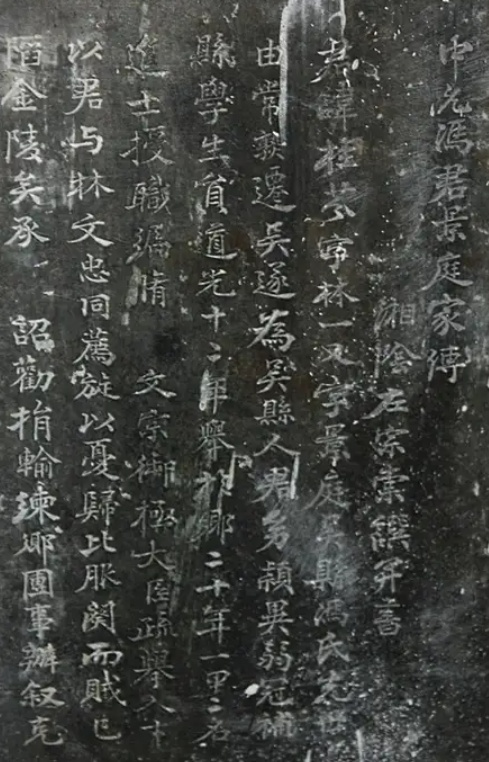 中允馮君景庭家傳
湘陰左宗棠譔并書
君諱桂芬字林一又字景庭吳縣馮氏先世
由常熟遷吳遂為吳縣人君少穎異弱冠補
縣學生員道光十二年舉於鄉二十年一甲二名
進士授職編脩　文宗御極大臣疏舉人才
以君与林文忠同薦旋以憂歸比服闋而賊已
陷金陵矣承　詔勸捐輸練鄉團事辦敘克